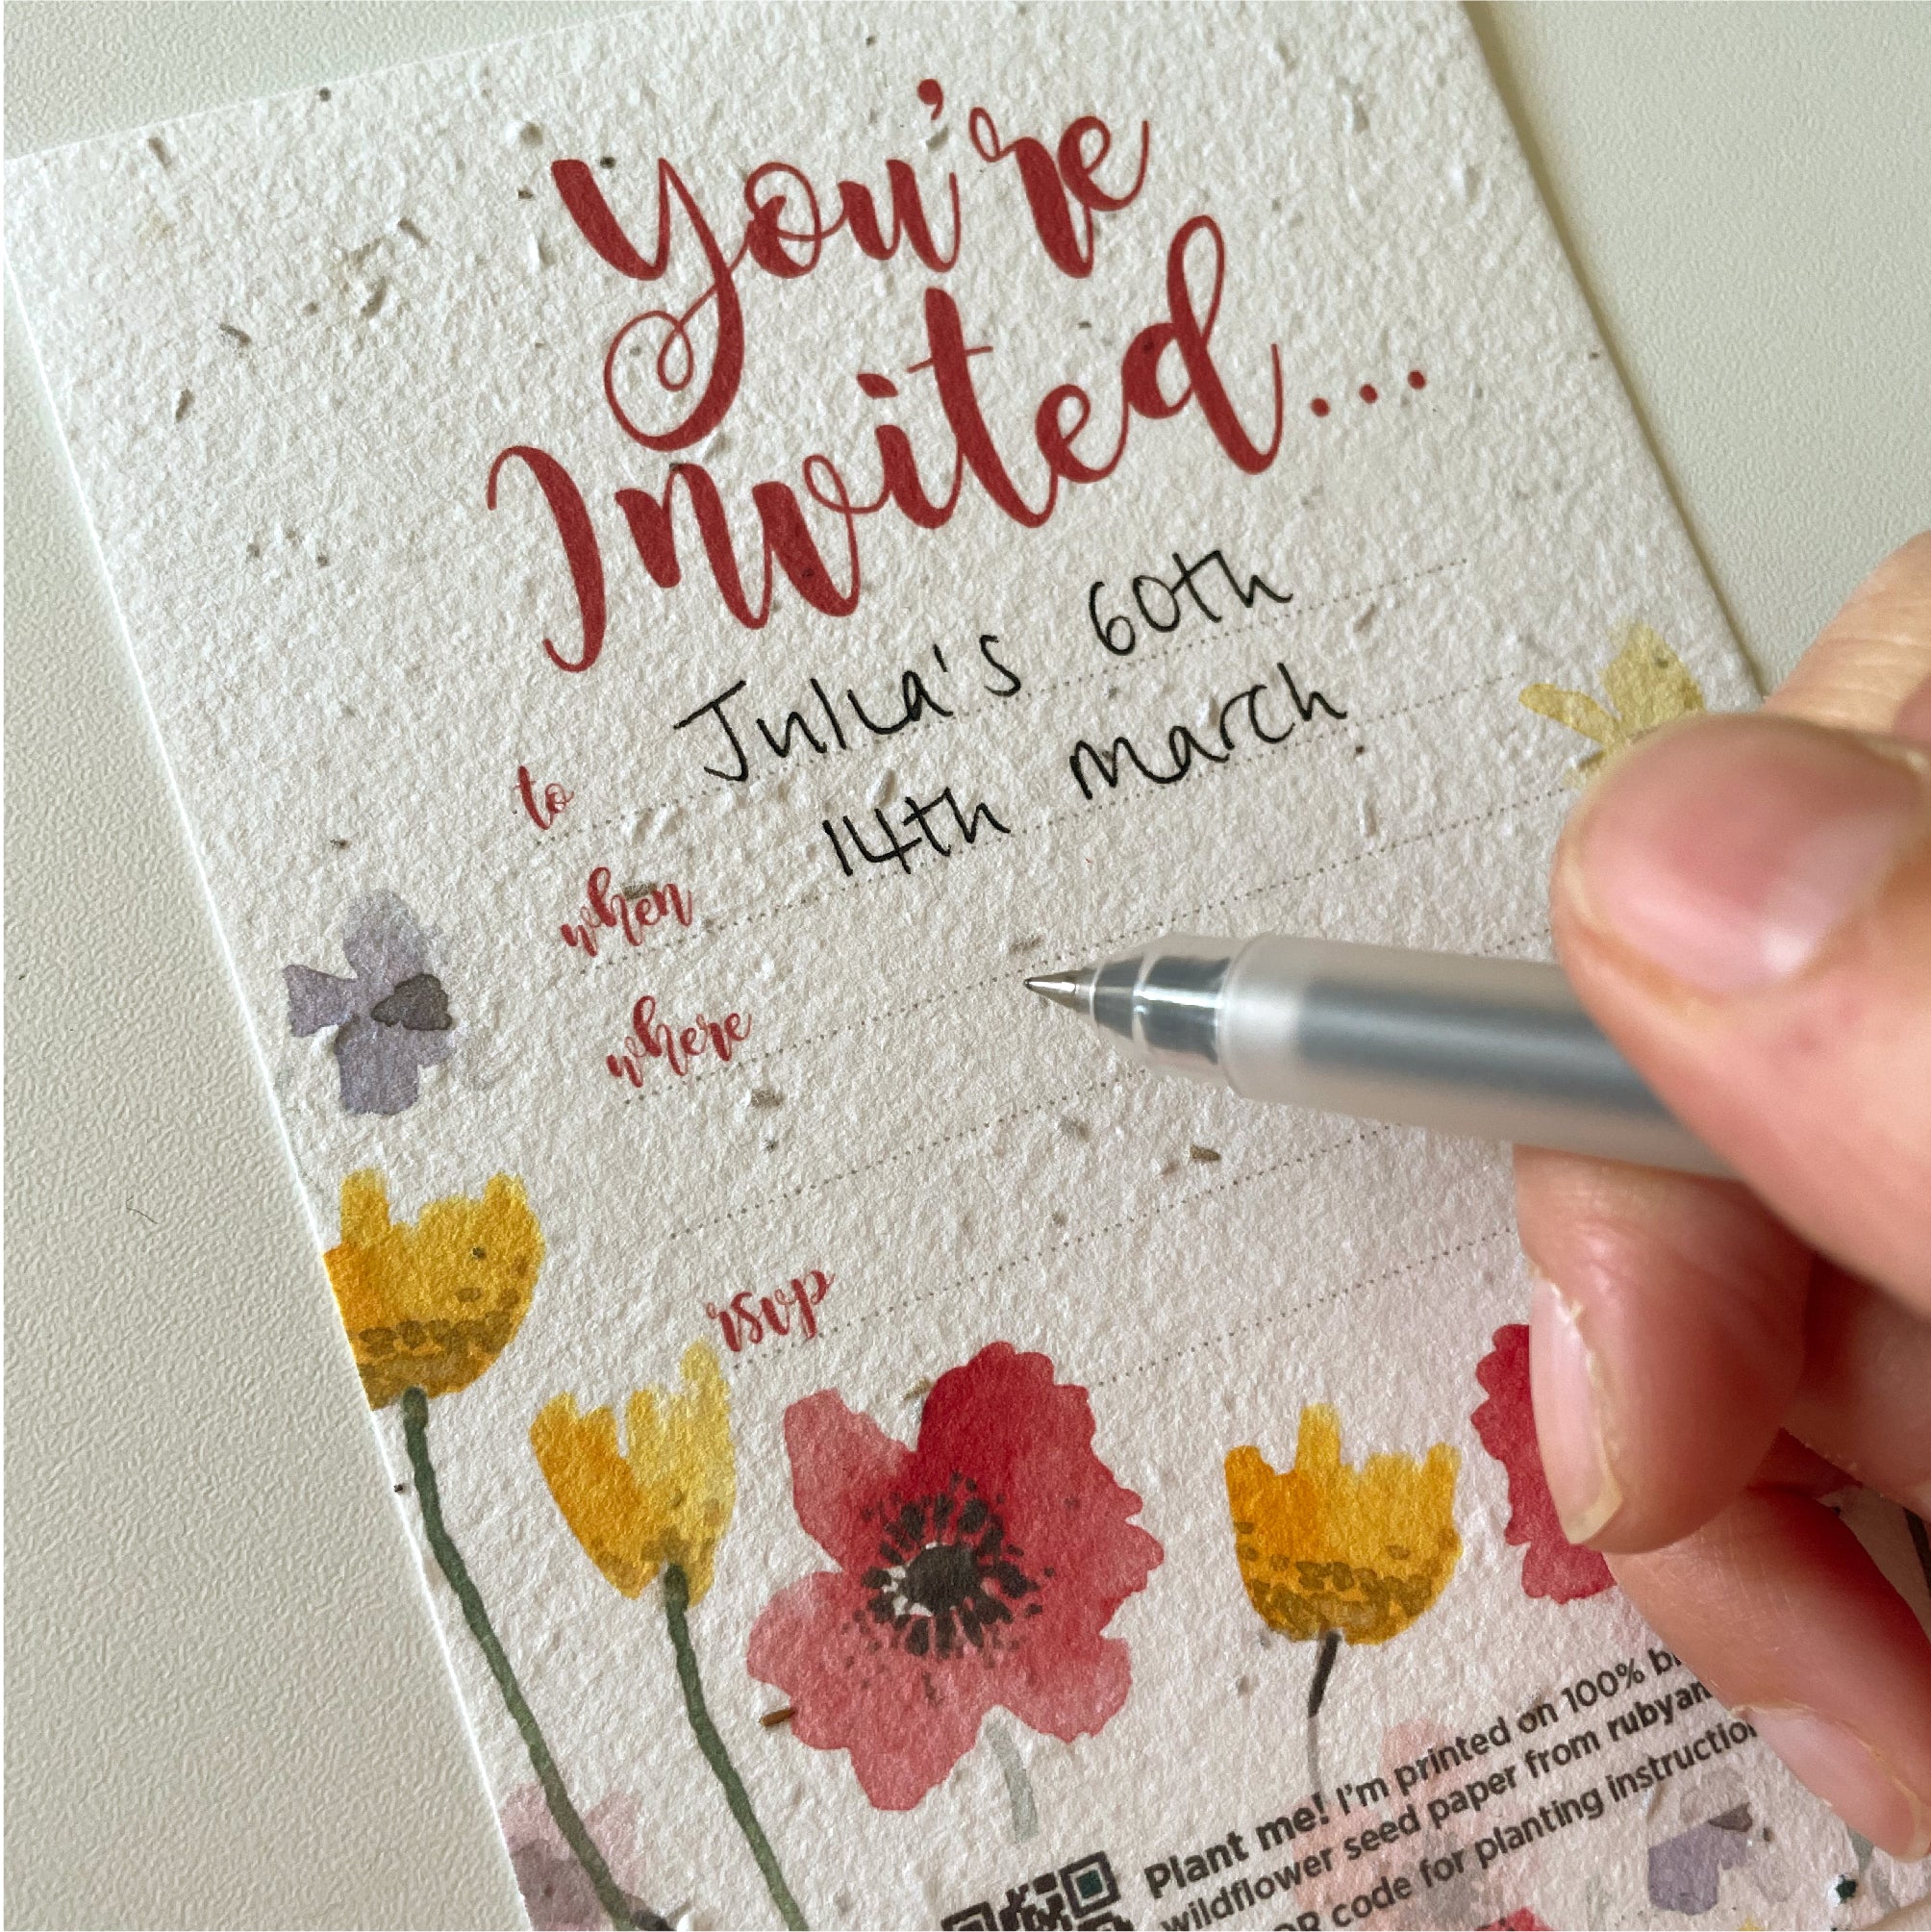 You're
Invited...
to Julia's 60th
when 14th march
where
rsvp
Plant me! I'm printed on 100%
wildflower seed paper from
code for planting